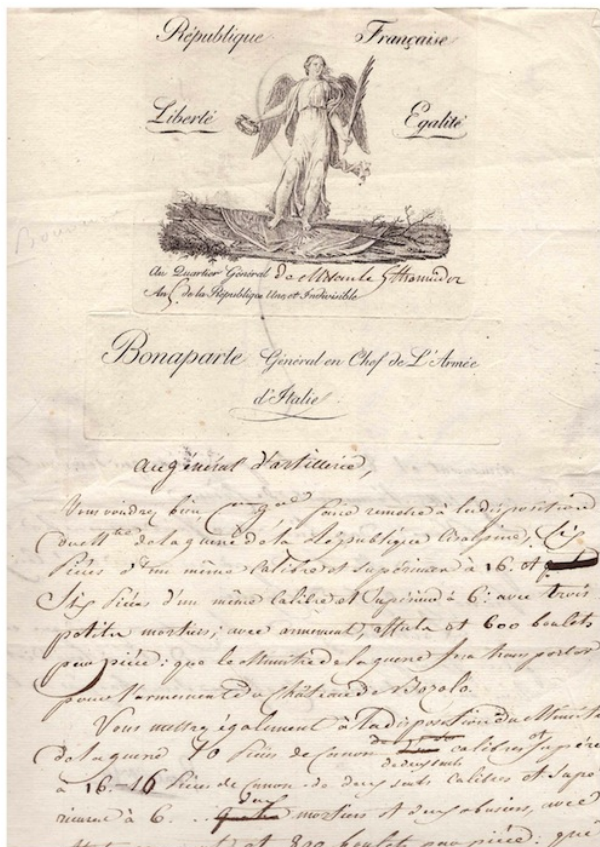 République Française
Liberté Egalité
Au Quartier Général de 9 thermidor
An 5 de la République Une, et Indivisible
Bonaparte Général en Chef de L'Armée
d'Italie
au général d'artillerie,
Vous voudrez bien faire remettre à la disposition
de la guerre de la République Cisalpine, Six
Pièces d'un même Calibre et supérieur à 16. et
Six Pièces d'un même calibre et Supérieur à 6: avec trois
petits mortiers; avec armement, affuts et 600 boulets
par pièce: que le Ministre de la guerre fera transporter
pour l'armement du Château de
Vous mettrez également à la disposition du Ministre
de la guerre 10 Pièces de Canon de deux calibres et supérieurs
de deux seuls
à 16. - 16 Pièces de Canon de deux seuls Calibres et Supé
rieurs à 6. deux mortiers et deux obusiers, avec
et 800 boulets par pièce: que